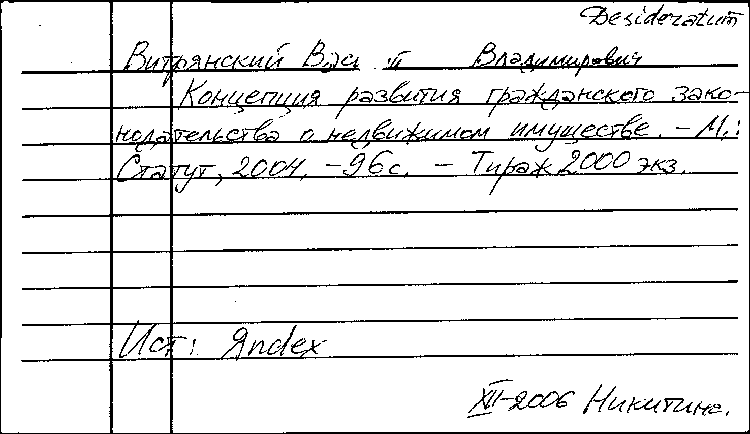 Desideratum
Витрянский Вас Владимирович
Концепция развития гражданского зако-
нодательства о недвижимом имуществе. – М.:
Статут, 2004. – 96 с. – Тираж 2000 экз.
Ист: Яndex
XII-2006 Никитина.